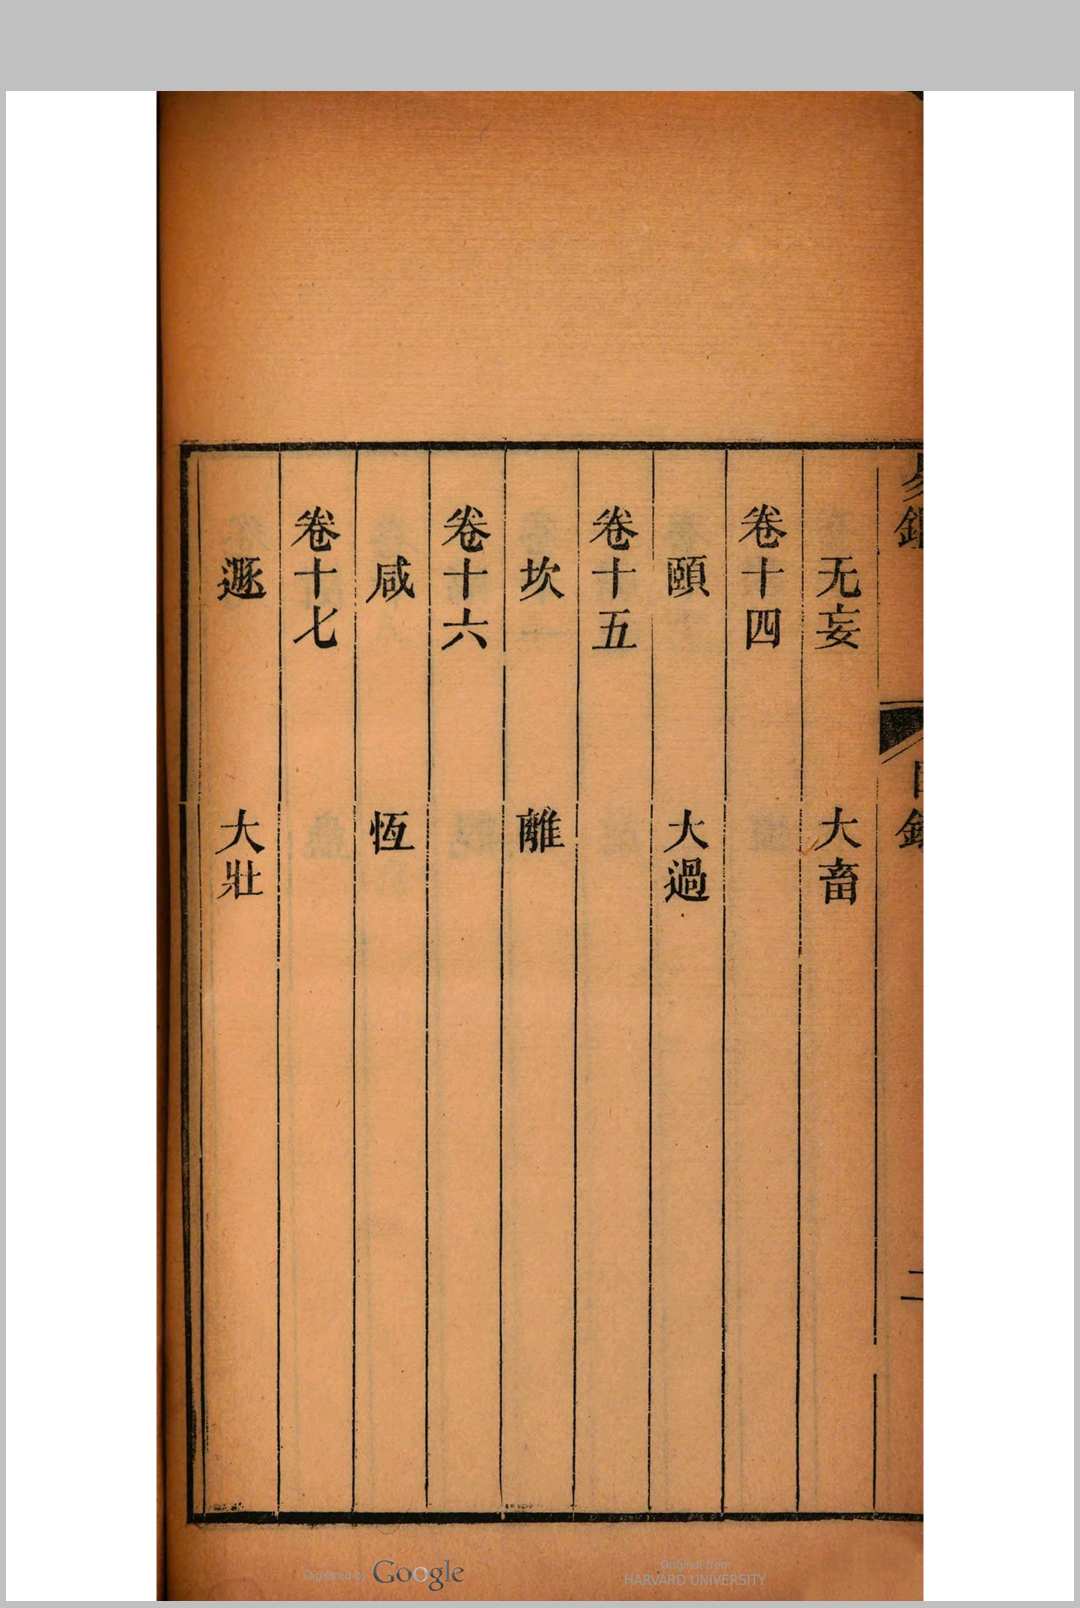 易鏡
目錄
二
无妄 大畜
卷十四
頤 大過
卷十五
坎 離
卷十六
咸 恆
卷十七
遯 大壯
Digitized by Google
Original from
HARVARD UNIVERSITY